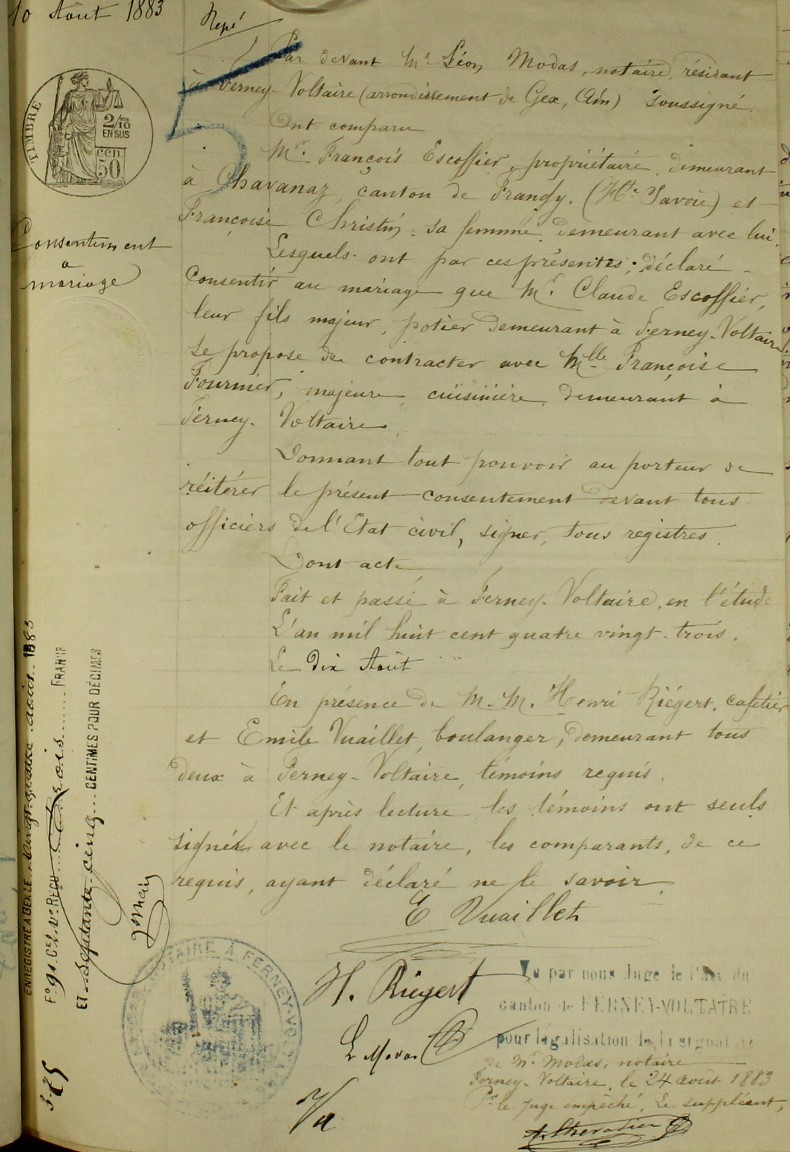 10 Août 1883
Repé
TIMBRE
2/10
EN SUS
50 cen
Consentement
à
mariage
Par devant Me Léon Modas, notaire, résidant
à Ferney-Voltaire (arrondissement de Gex, Ain) soussigné
Ont comparu
Mr. François Escoffier, propriétaire, demeurant
à Chavanaz, canton de Frangy. (Hte Savoie) et
Françoise Christin, sa femme, demeurant avec lui.
Lesquels ont par ces présentes, déclaré
consentir au mariage que Mr. Claude Escoffier,
leur fils majeur, potier demeurant à Ferney-Voltaire
se propose de contracter avec Mlle Françoise
Fournier, majeure, cuisinière, demeurant à
Ferney-Voltaire.
Donnant tout pouvoir au porteur de
réitérer le présent consentement devant tous
officiers de l'Etat civil, signer, tous registres.
Dont acte
Fait et passé à Ferney-Voltaire, en l'étude
L'an mil huit cent quatre vingt-trois.
Le dix Août
En présence de M.M. Henri Riégert, cafetier
et Emile Vuaillet, boulanger, demeurant tous
deux à Ferney-Voltaire, témoins requis.
Et après lecture les témoins ont seuls
signé avec le notaire, les comparants, de ce
requis, ayant déclaré ne le savoir.
E Vuaillet
H. Riegert
L Modas
Vu par nous Juge de Paix du
canton de FERNEY-VOLTAIRE
pour légalisation de la signature
de Me. Modas, notaire
Ferney-Voltaire, le 24 août 1883
Pr. le Juge empêché, Le suppléant,
NOTAIRE A FERNEY-VOLTAIRE
ENREGISTRÉ A GEX LE vingt quatre août 1883
F° 91 Ce 2 Vo REÇU trois FRANCS
ET septante cinq CENTIMES POUR DÉCIMES
3-75